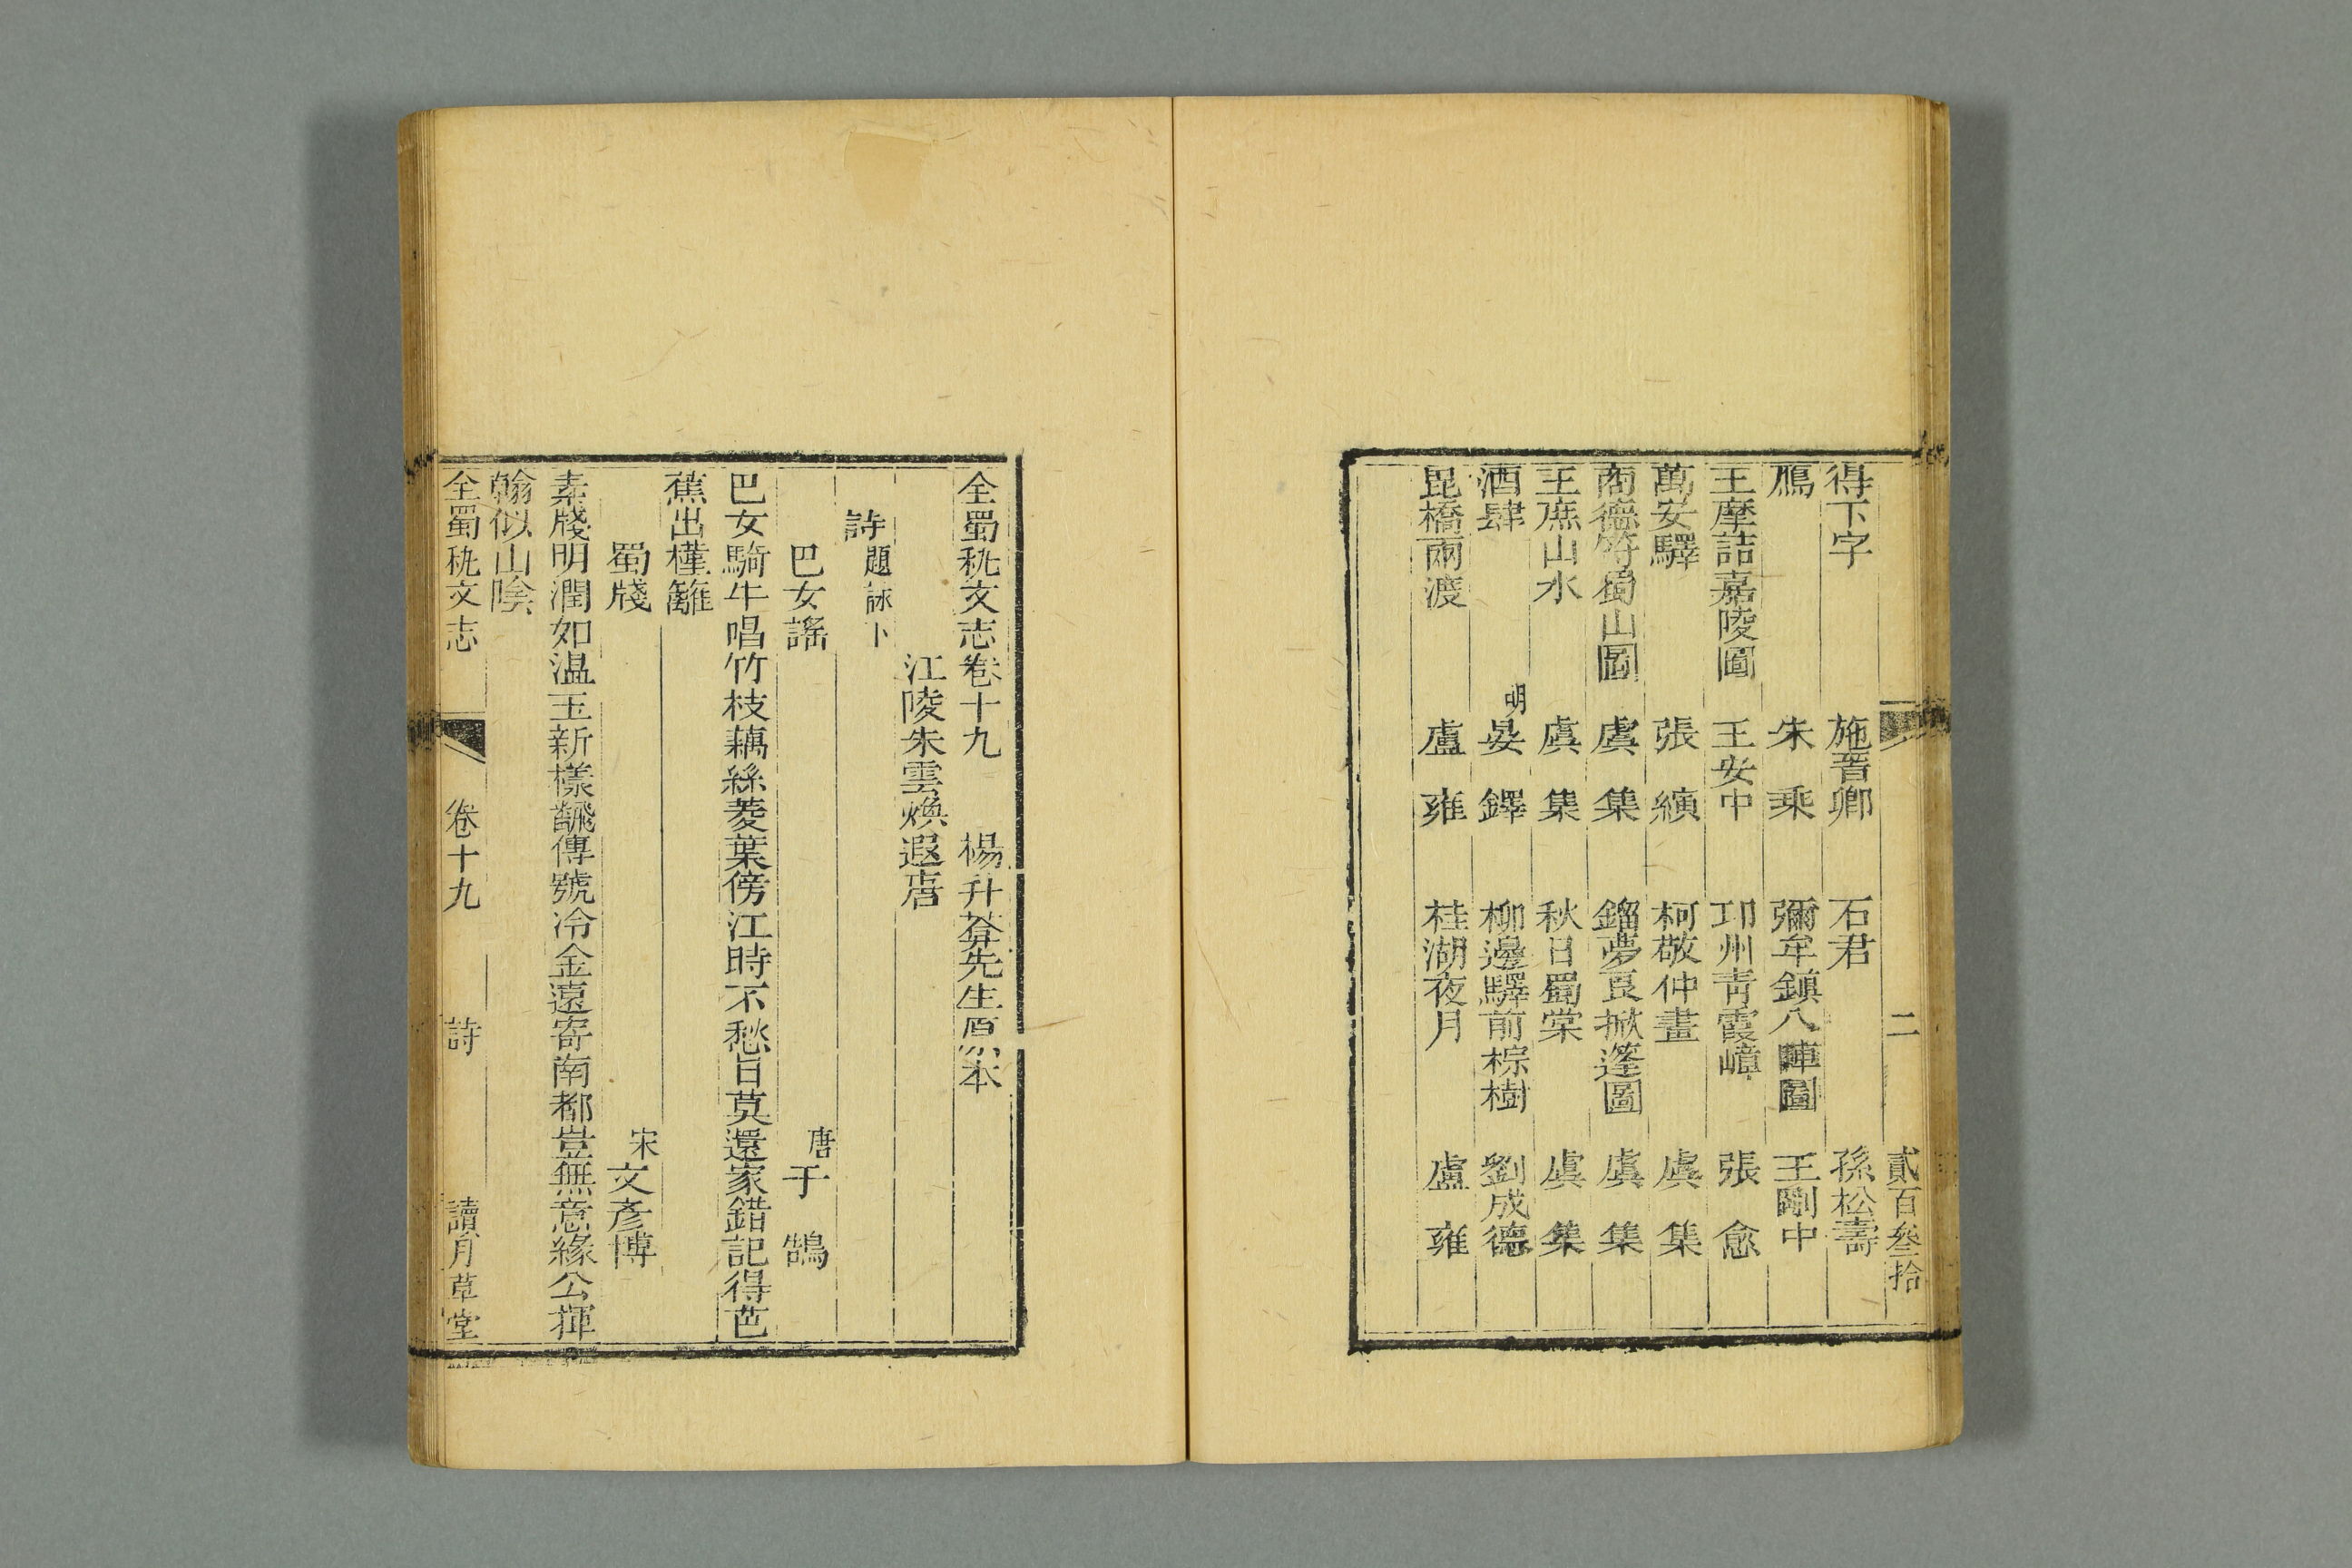 二 貳百叁拾
得下字 施晋卿 石君 孫松壽
鴈 朱乘 彌牟鎮八陣圖 王剛中
王摩詰嘉陵圖 王安中 邛州靑霞嶂 張愈
萬安驛 張縯 柯敬仲畫 虞集
商德符蜀山圖 虞集 鎦夢良掀篷圖 虞集
王庶山水 虞集 秋日蜀棠 虞集
酒肆 明晏鐸 柳邊驛前棕樹 劉成德
毘橋雨渡 盧雍 桂湖夜月 盧雍
全蜀秇文志卷十九 楊升菴先生原本
江陵朱雲煥遐唐
詩題詠下
巴女謠 唐于鵠
巴女騎牛唱竹枝藕絲菱葉傍江時不愁日莫還家錯記得芭
蕉出槿籬
蜀牋 宋文彥博
素牋明潤如溫玉新樣飜傳號冷金遠寄南都豈無意緣公揮
翰似山陰
全蜀秇文志 卷十九 詩 讀月草堂